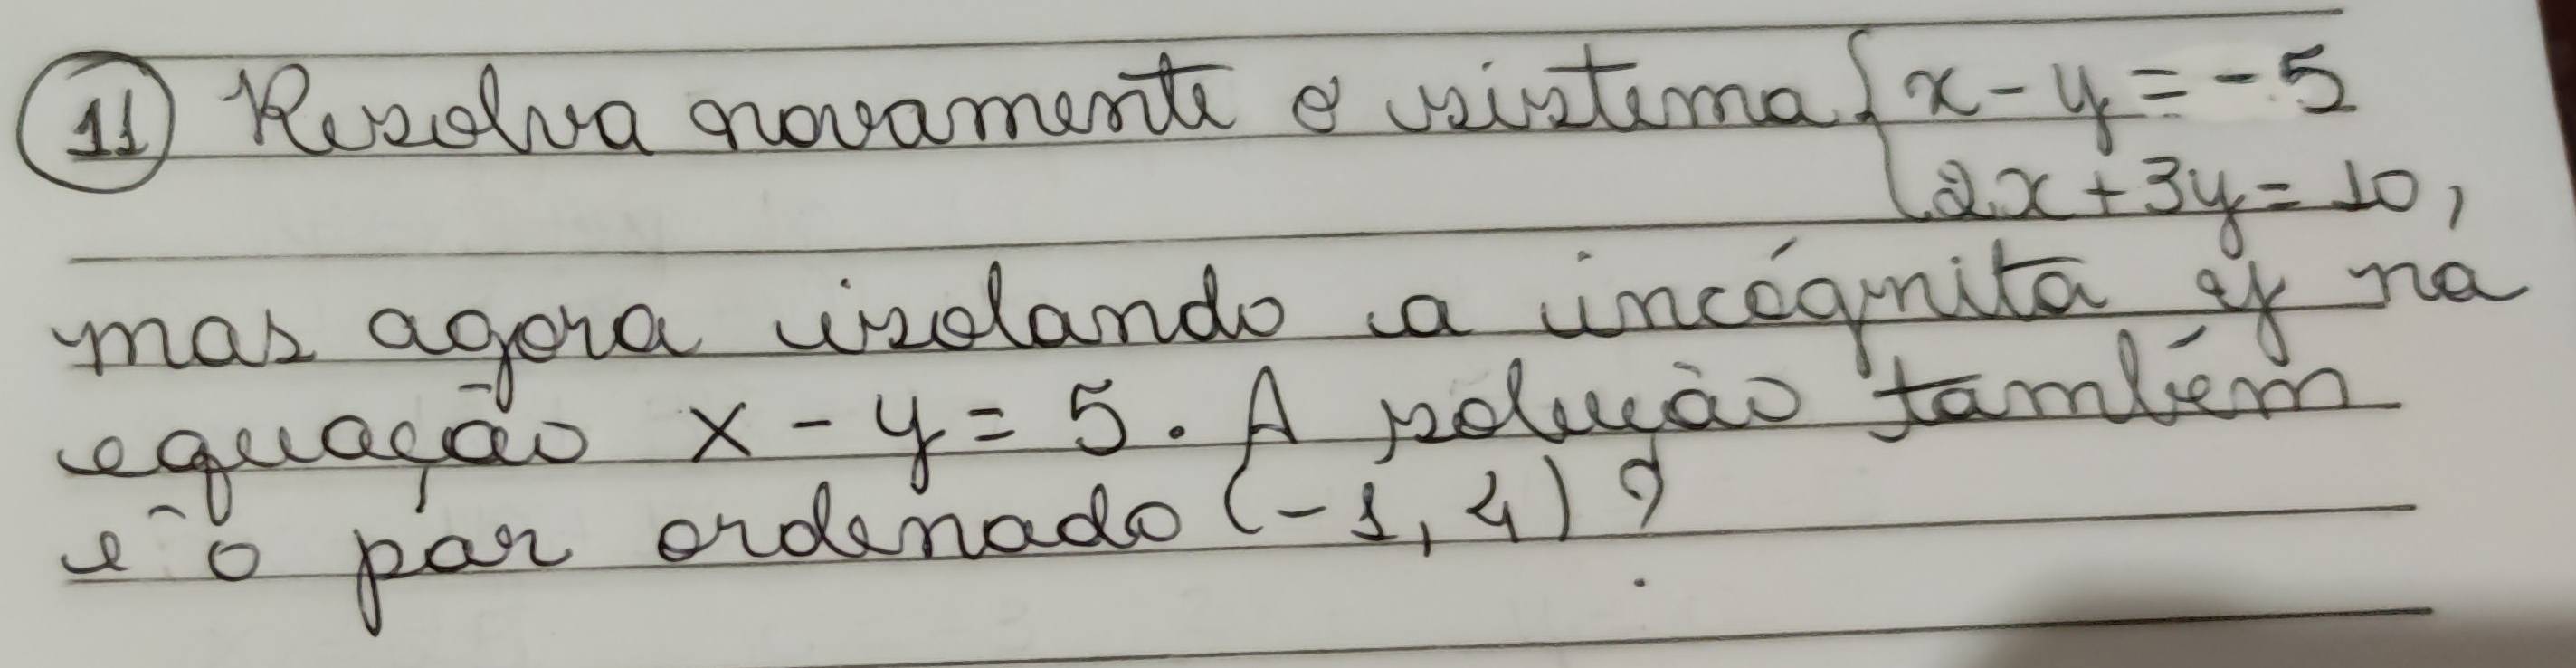 11 Resolva novamente o sistema { x - y = - 5
{ 2x + 3y = 10,
mas agora isolando a incógnita y na
equação x - y = 5. A solução também
é o par ordenado (-1, 4)?